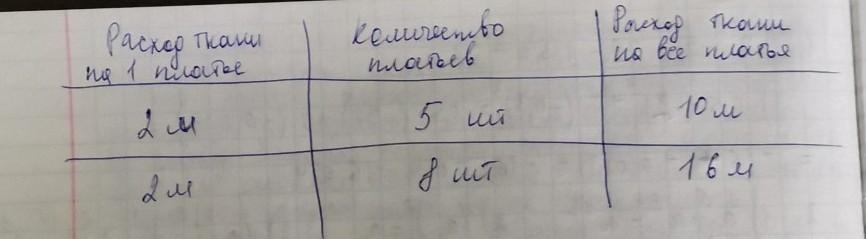 Расход ткани на 1 платье | Количество платьев | Расход ткани на все платья
2 м | 5 шт | 10 м
2 м | 8 шт | 16 м